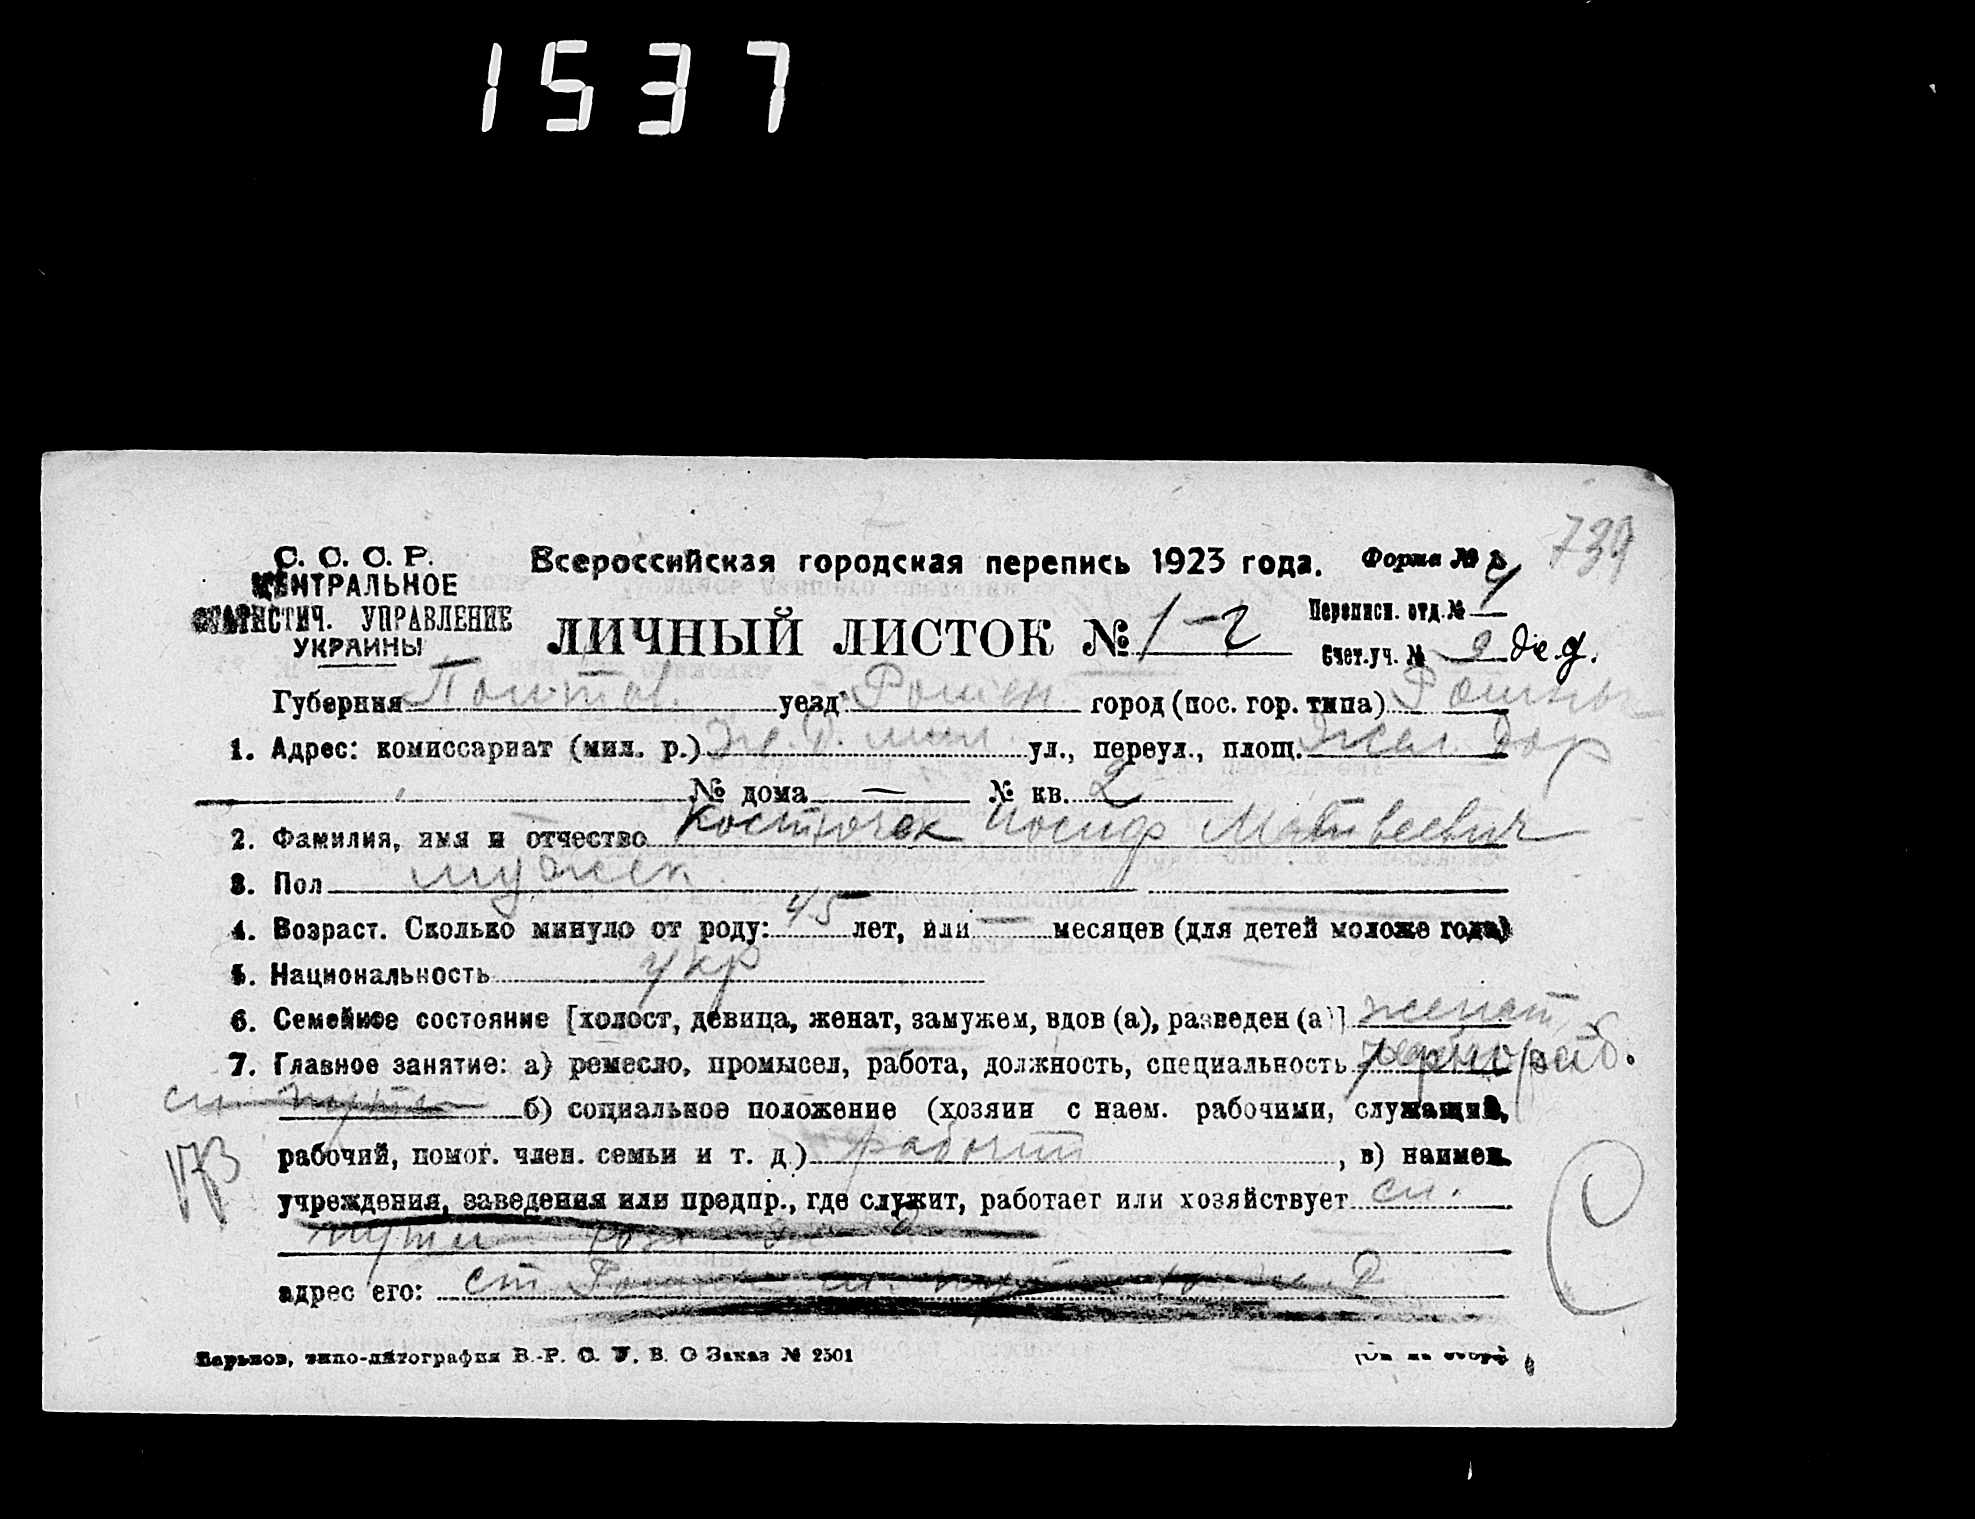 1537
739
С. С. С. Р.
ЦЕНТРАЛЬНОЕ
СТАТИСТИЧ. УПРАВЛЕНИЕ
УКРАИНЫ
Всероссийская городская перепись 1923 года. Форма №
ЛИЧНЫЙ ЛИСТОК № 1-2
Переписн. отд. №
Счет. уч. №
Губерния Полтав. уезд Ромен город (пос. гор. типа) Ромны
1. Адрес: комиссариат (мил. р.) Ж. Д. мил. ул., переул., площ. Жел. Дор
№ дома — № кв. 2
2. Фамилия, имя и отчество Костючек Иосиф Матвеевич
3. Пол мужск.
4. Возраст. Сколько минуло от роду: 45 лет, или — месяцев (для детей моложе года)
5. Национальность укр
6. Семейное состояние [холост, девица, женат, замужем, вдов (а), разведен (а)] женат
7. Главное занятие: а) ремесло, промысел, работа, должность, специальность чернораб.
сл пути б) социальное положение (хозяин с наем. рабочими, служащий,
173
рабочий, помог. член. семьи и т. д.) рабочий, в) наимен.
учреждения, заведения или предпр., где служит, работает или хозяйствует сл.
пути
адрес его: ст
Харьков, типо-литография В.-Р. С. У. В. О Заказ № 2501